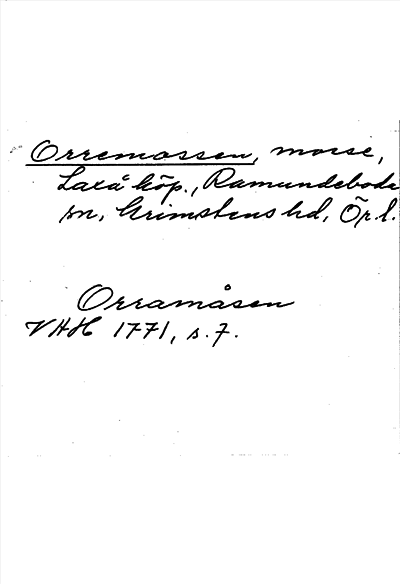 Orremossen, mosse,
Laxå köp., Ramundeboda
sn, Grimstens hd, Ör.l.
Orramåsen
VHH 1771, s. 7.